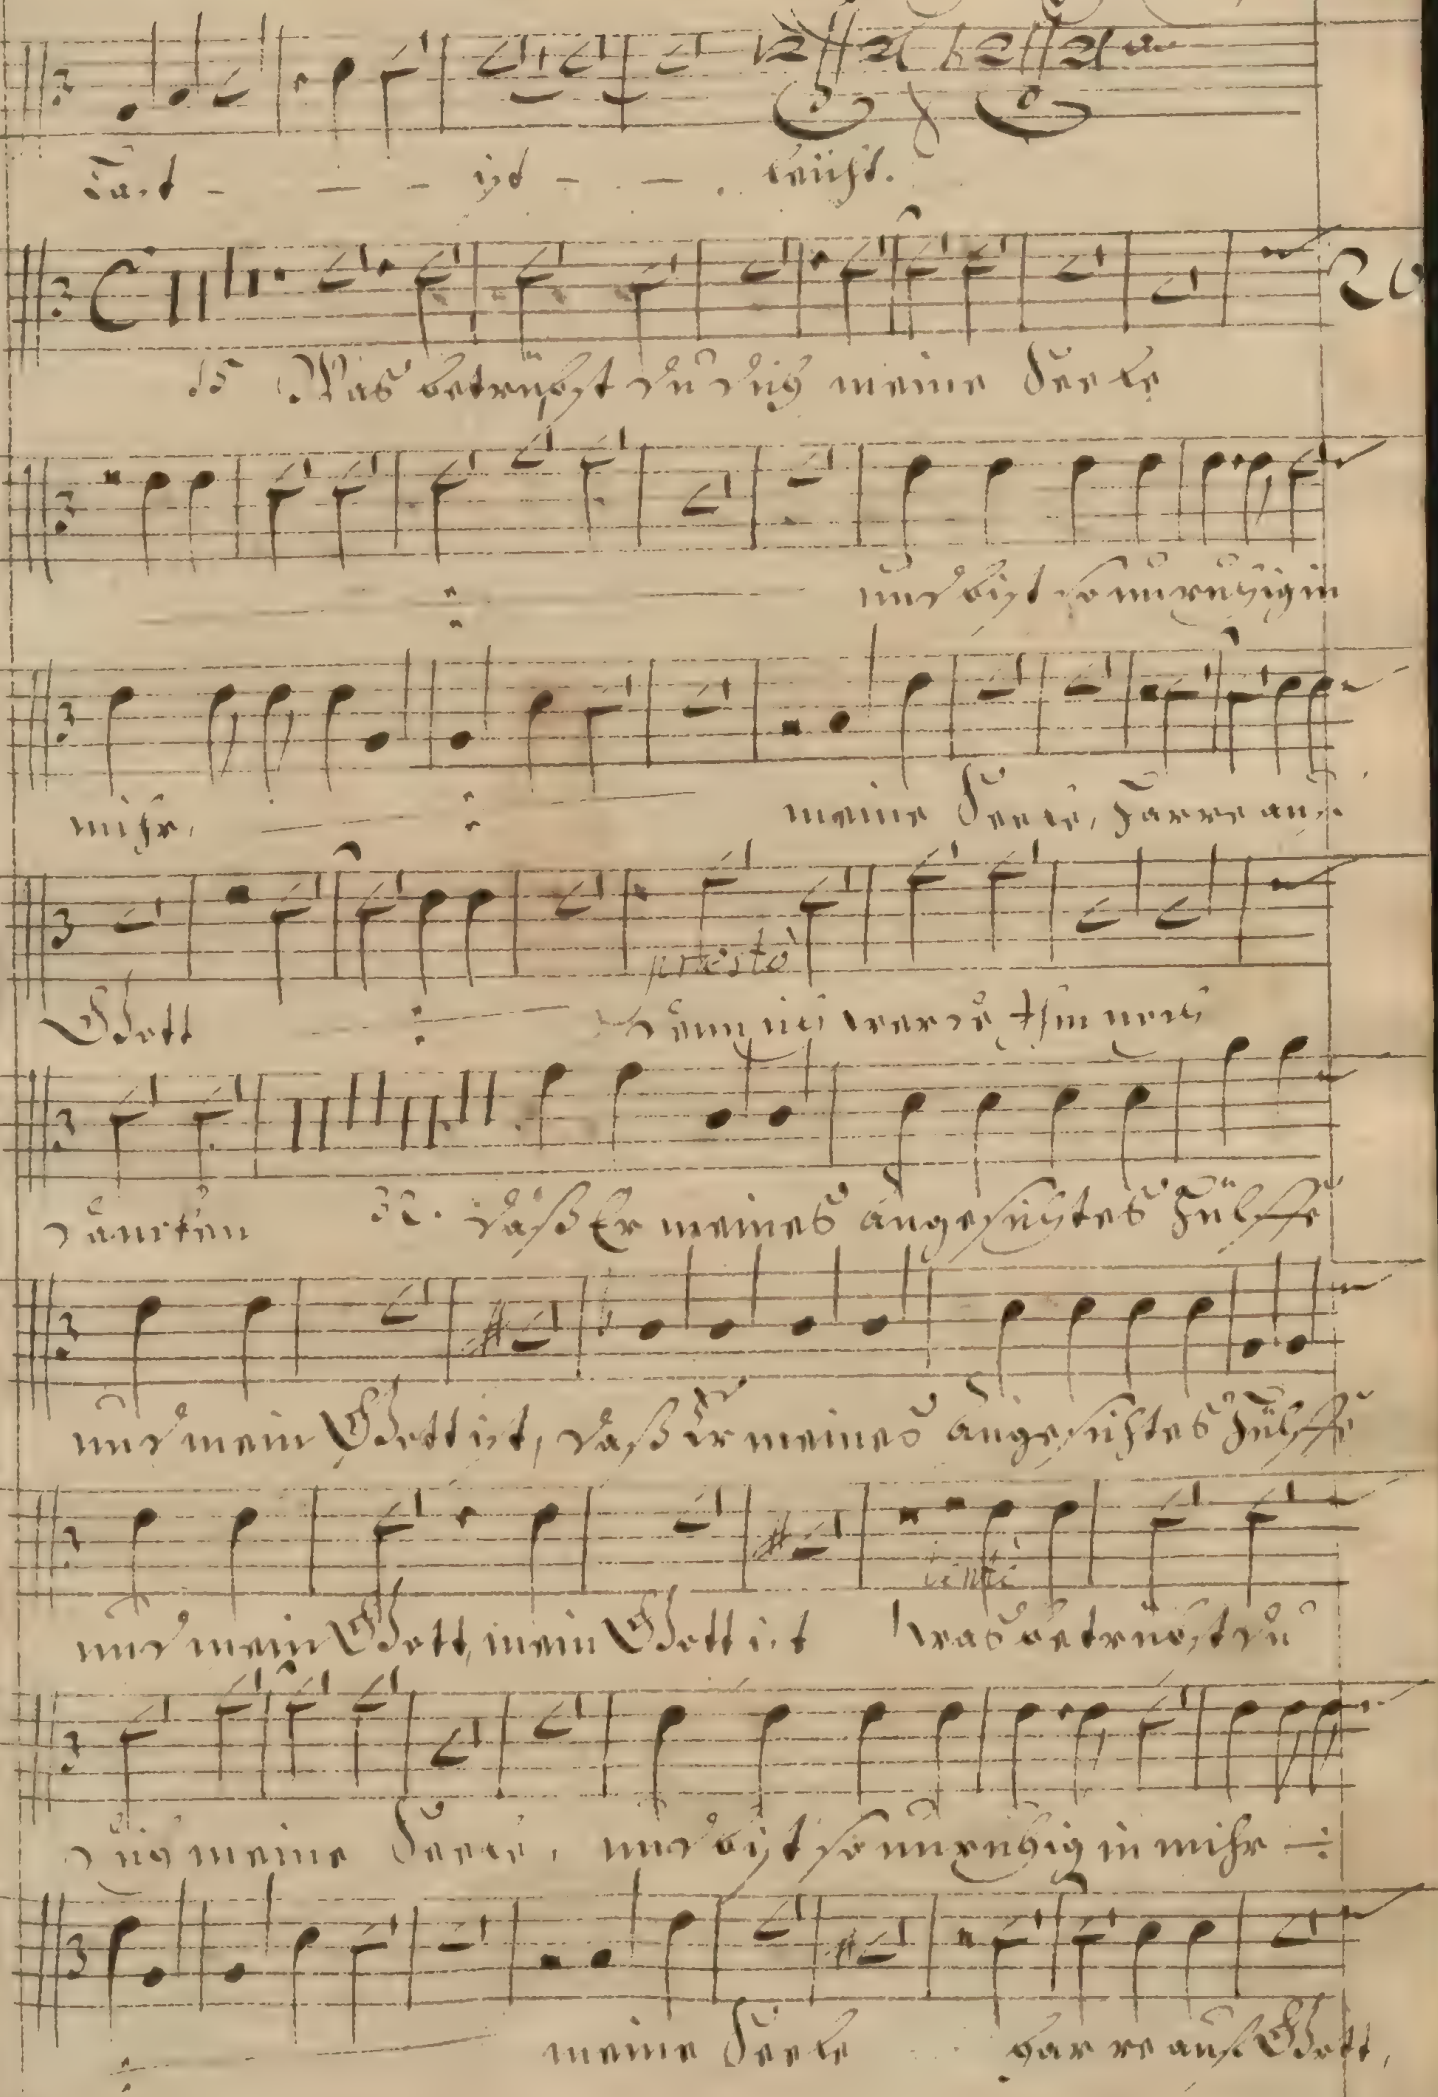 leücht.
20
35 Was betrübst du dich meine Seele
und bist so unruhig in
mihr, meine Seele, Harre auf
Gott
presto
denn ich werde Ihm noch
dancken 32. daß Er meines angesichtes Hülffe
und mein Gott ist, daß Er meines angesichtes Hülffe
lentè
und mein Gott, mein Gott ist was betrübst du
dich meine Seele, und bist so unruhig in mihr
meine Seele harre auf Gott,